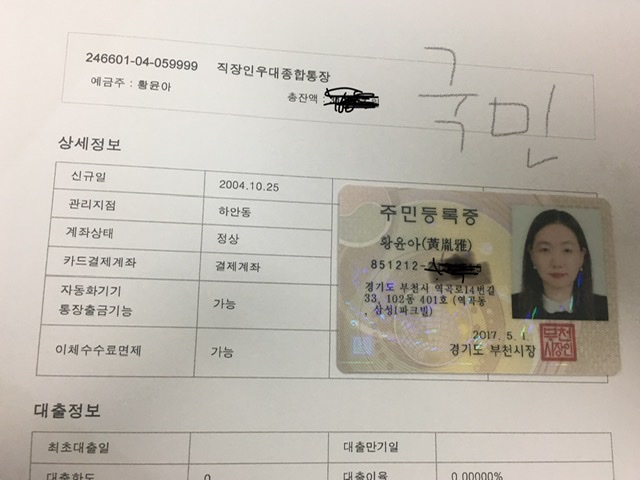 246601-04-059999 직장인우대종합통장
예금주 : 황윤아
총잔액 :
국민
상세정보
신규일 2004.10.25
관리지점 하안동
계좌상태 정상
카드결제계좌 결제계좌
자동화기기
통장출금기능 가능
이체수수료면제 가능
주민등록증
황윤아(黃胤雅)
851212-
경기도 부천시 역곡로14번길
33, 102동 401호 (역곡동
, 삼성1파크빌)
2017. 5. 1.
경기도 부천시장
부천
시장인
대출정보
최초대출일 대출만기일
대출한도 0 대출이율 0.00000%